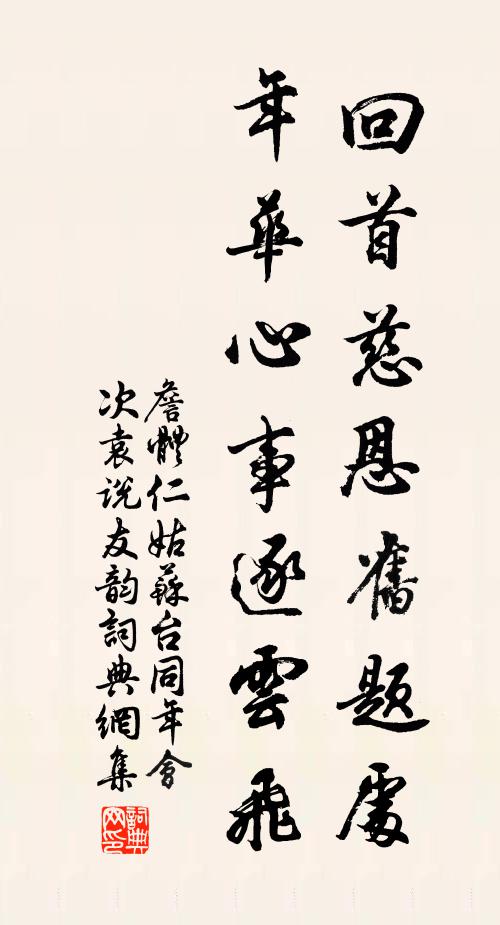 回首慈恩舊題處
年華心事逐雲飛
詹體仁姑蘇台同年會
次袁説友韵詞典網集
詞典網印